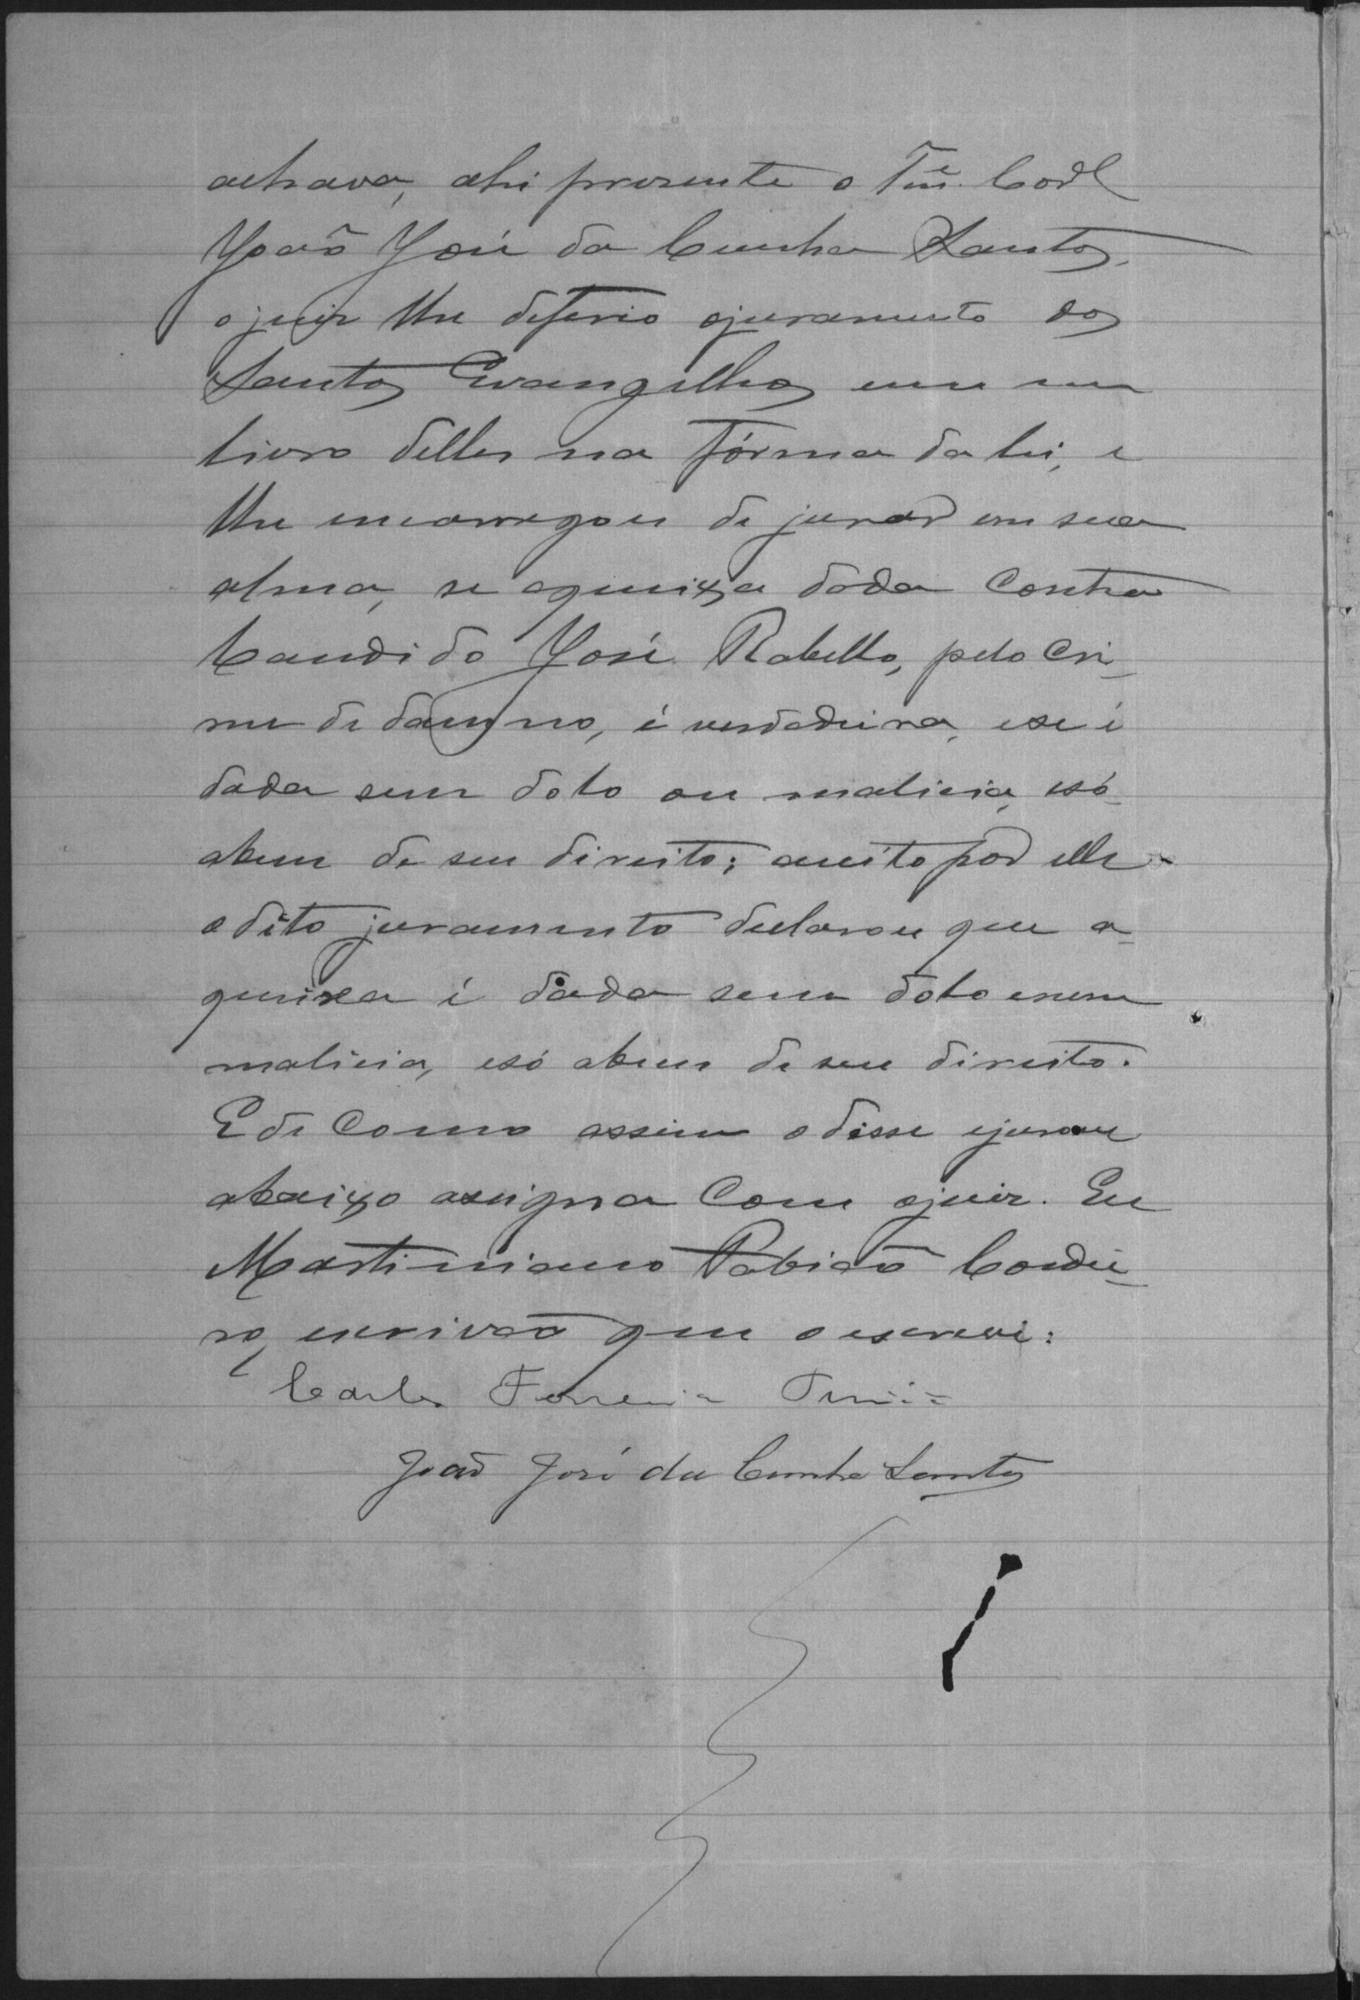 achava, ahi presente o Tne. Corel
João José da Cunha Santos,
o juiz lhe deferio ojuramento dos
Santos Evangelhos em um
livro delles na fórma da lei, e
lhe encarregou de jurar em sua
alma, se aqueixa dada contra
Candido José Rabello, pelo cri-
me de damno, é verdadeira, ese é
dada sem dolo ou malicia, esó
abem de seu direito; aceito por elle
o dito juramento declarou que a
queixa é dada sem dolo enem
malicia, esó abem de seu direito.
E de como assim o disse ejurou
abaixo assigna com ojuiz. Eu
Martiniano Fabião Cordei-
ro, escrivão que o escrevi:
Carlos Ferreira
João José da Cunha Santos